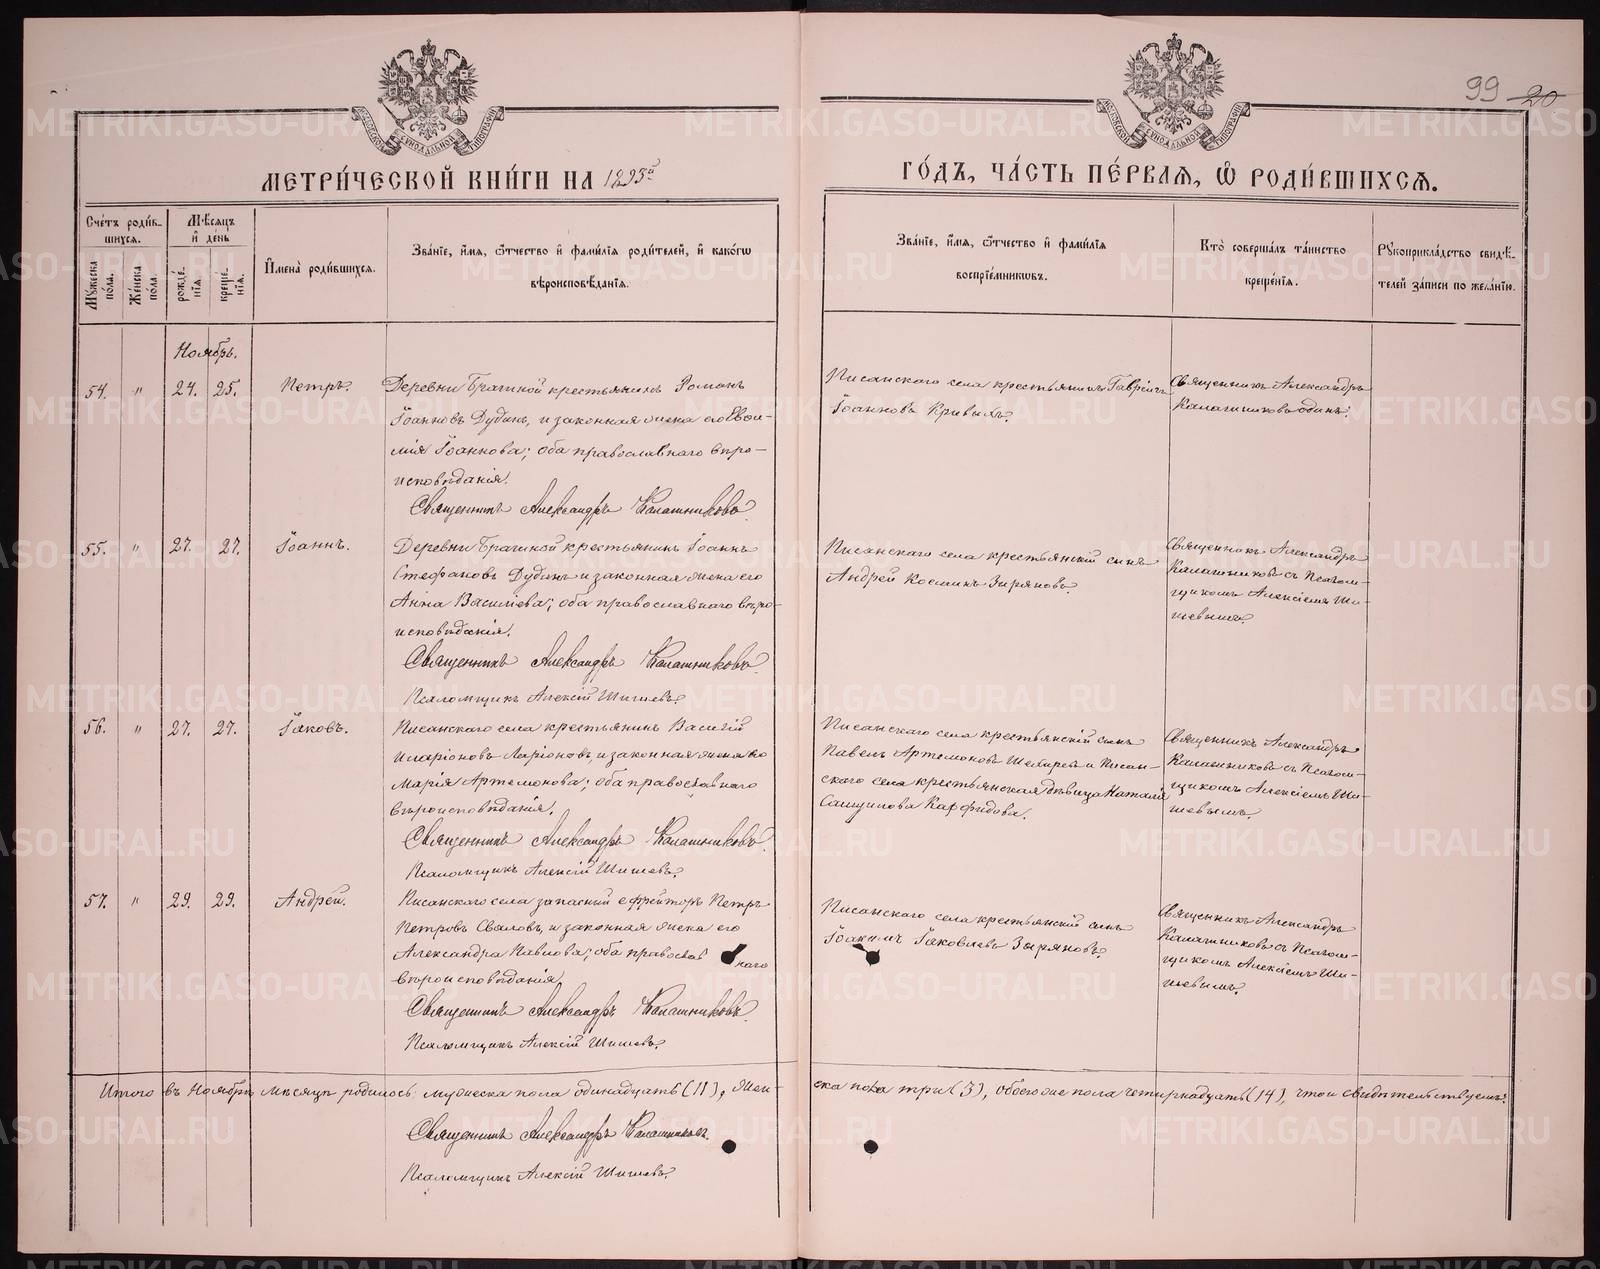 99 20
МЕТРИ́ЧЕСКОЙ КНИ́ГИ НА 1895й
ГО́ДЪ, ЧА́СТЬ ПЕ́РВАѦ, Ѽ РОДИ́ВШИХСѦ.
Сче́тъ роди́в-
шихсѧ.
Мѣ́сѧцъ
и҆ де́нь
И҆мена̀ роди́вшихсѧ.
Зва́нїе, и҆́мѧ, ѻ҆́тчество и҆ фами́лїѧ роди́телей, и҆ како́гѡ
вѣроисповѣ́данїѧ.
Мꙋ́жеска
по́ла.
Же́нска
по́ла.
рожде́-
нїѧ.
креще́-
нїѧ.
Зва́нїе, и҆́мѧ, ѻ҆́тчество и҆ фами́лїѧ
воспрїе́мникωвъ.
Кто̀ соверша́лъ та́инство
креще́нїѧ.
Рꙋкоприкла́дство свидѣ́-
телей за́писи по жела́нїю.
Ноябрь.
54. " 24. 25. Петръ.
Деревни Брагиной крестьянинъ Романъ
Іоанновъ Дудинъ, и законная жена его Евѳи-
мія Іоаннова; оба православнаго вѣро-
исповѣданія.
Священникъ Александръ Калашниковъ
Писанскаго села крестьянинъ Гавріилъ
Іоанновъ Кривыхъ.
Священникъ Александръ
Калашниковъ одинъ.
55. " 27. 27. Іоаннъ.
Деревни Брагиной крестьянинъ Іоаннъ
Стефановъ Дудинъ и законная жена его
Анна Василіева; оба православнаго вѣро-
исповѣданія.
Священникъ Александръ Калашниковъ
Псаломщикъ Алексій Шишевъ.
Писанскаго села крестьянскій сынъ
Андрей Космин Зыряновъ.
Священникъ Александръ
Калашниковъ съ Псалом-
щикомъ Алексіемъ Ши-
шевымъ.
56. " 27. 27. Іаковъ.
Писанскаго села крестьянинъ Василій
Иларіоновъ Ларіоновъ, и законная жена его
Марія Артемонова; оба православнаго
вѣроисповѣданія.
Священникъ Александръ Калашниковъ
Псаломщикъ Алексій Шишевъ.
Писанскаго села крестьянскій сынъ
Павелъ Артемоновъ и Писан-
скаго села крестьянская дѣвица Наталія
Священникъ Александръ
Калашниковъ съ Псалом-
щикомъ Алексіемъ Ши-
шевымъ.
57. " 29. 29. Андрей.
Писанскаго села запасный ефрейторъ Петръ
Петровъ Сваловъ, и законная жена его
Александра Павлова; оба православнаго
вѣроисповѣданія
Священникъ Александръ Калашниковъ.
Псаломщикъ Алексій Шишевъ.
Писанскаго села крестьянскій сынъ
Іоакимъ Іаковлевъ Зыряновъ.
Священникъ Александръ
Калашниковъ съ Псалом-
щикомъ Алексіемъ Ши-
шевымъ.
Итого въ Ноябрѣ мѣсяцѣ родилось: мужеска пола одинадцать (11), жен-
ска пола три (3), обоегоже пола четырнадцать (14), что и свидѣтельствуемъ:
Священникъ Александръ Калашниковъ.
Псаломщикъ Алексій Шишевъ.
METRIKI.GASO-URAL.RU